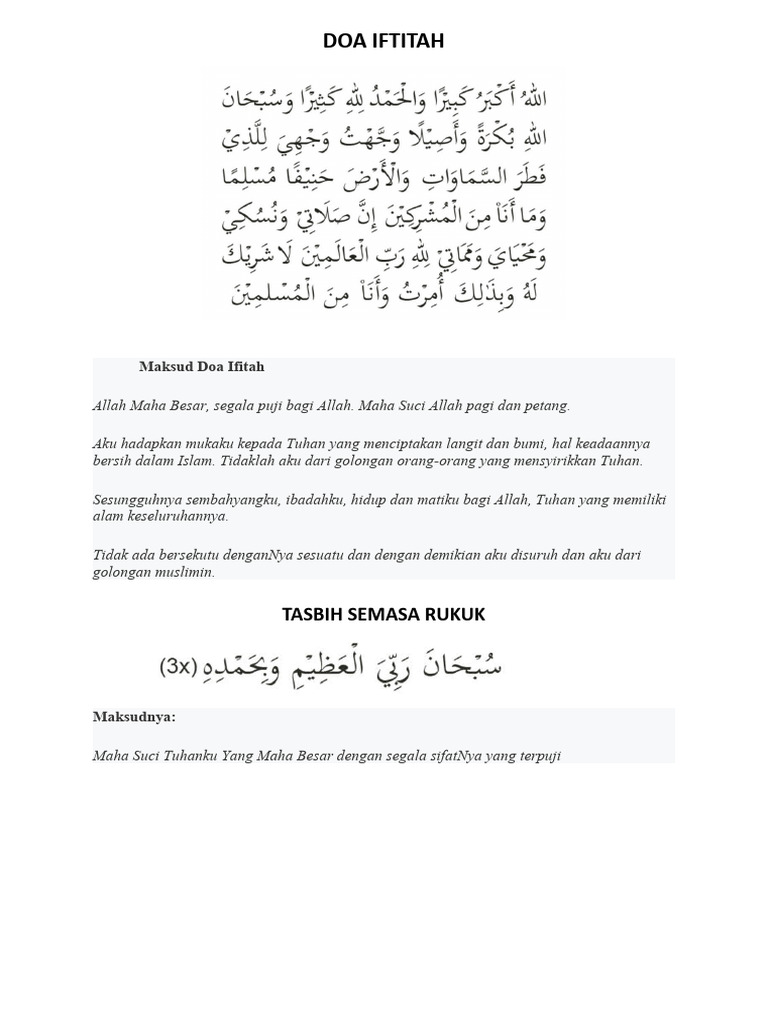 DOA IFTITAH
اللهُ أَكْبَرُ كَبِيْرًا وَالْحَمْدُ لِلهِ كَثِيْرًا وَسُبْحَانَ
اللهِ بُكْرَةً وَأَصِيْلًا وَجَّهْتُ وَجْهِيَ لِلَّذِيْ
فَطَرَ السَّمَاوَاتِ وَالْأَرْضَ حَنِيْفًا مُسْلِمًا
وَمَا أَنَاْ مِنَ الْمُشْرِكِيْنَ إِنَّ صَلَاتِيْ وَنُسُكِيْ
وَمَحْيَايَ وَمَمَاتِيْ لِلهِ رَبِّ الْعَالَمِيْنَ لَا شَرِيْكَ
لَهُ وَبِذَٰلِكَ أُمِرْتُ وَأَنَاْ مِنَ الْمُسْلمِيْنَ
Maksud Doa Ifitah
Allah Maha Besar, segala puji bagi Allah. Maha Suci Allah pagi dan petang.
Aku hadapkan mukaku kepada Tuhan yang menciptakan langit dan bumi, hal keadaannya
bersih dalam Islam. Tidaklah aku dari golongan orang-orang yang mensyirikkan Tuhan.
Sesungguhnya sembahyangku, ibadahku, hidup dan matiku bagi Allah, Tuhan yang memiliki
alam keseluruhannya.
Tidak ada bersekutu denganNya sesuatu dan dengan demikian aku disuruh dan aku dari
golongan muslimin.
TASBIH SEMASA RUKUK
سُبْحَانَ رَبِّيَ الْعَظِيْمِ وَبِحَمْدِهِ (3x)
Maksudnya:
Maha Suci Tuhanku Yang Maha Besar dengan segala sifatNya yang terpuji